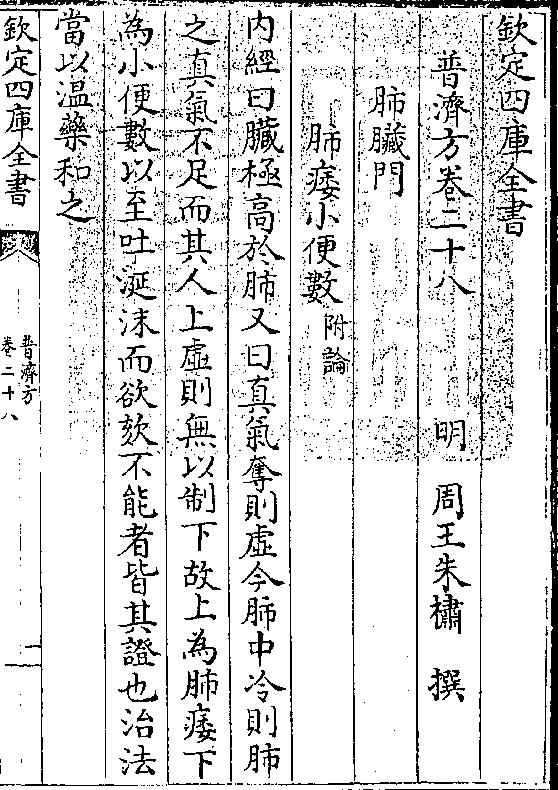 欽定四庫全書
普濟方卷二十八 明 周王朱橚 撰
肺臟門
肺痿小便數附論
内經曰臟極高於肺又曰真氣奪則虛今肺中冷則肺
之真氣不足而其人上虛則無以制下故上為肺痿下
為小便數以至吐涎沫而欲欬不能者皆其證也治法
當以温藥和之
欽定四庫全書
普濟方
卷二十八
一